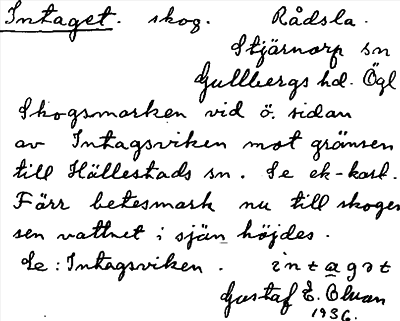 Intaget. skog. Rådsla.
Stjärnorp sn
Gullbergs hd. Ögl
Skogsmarken vid ö. sidan
av Intagsviken mot gränsen
till Hällestads sn. Se ek-kart.
Förr betesmark nu till skogen
sen vattnet i sjön höjdes.
Se: Intagsviken. intagət
Gustaf E. Olson
1936.